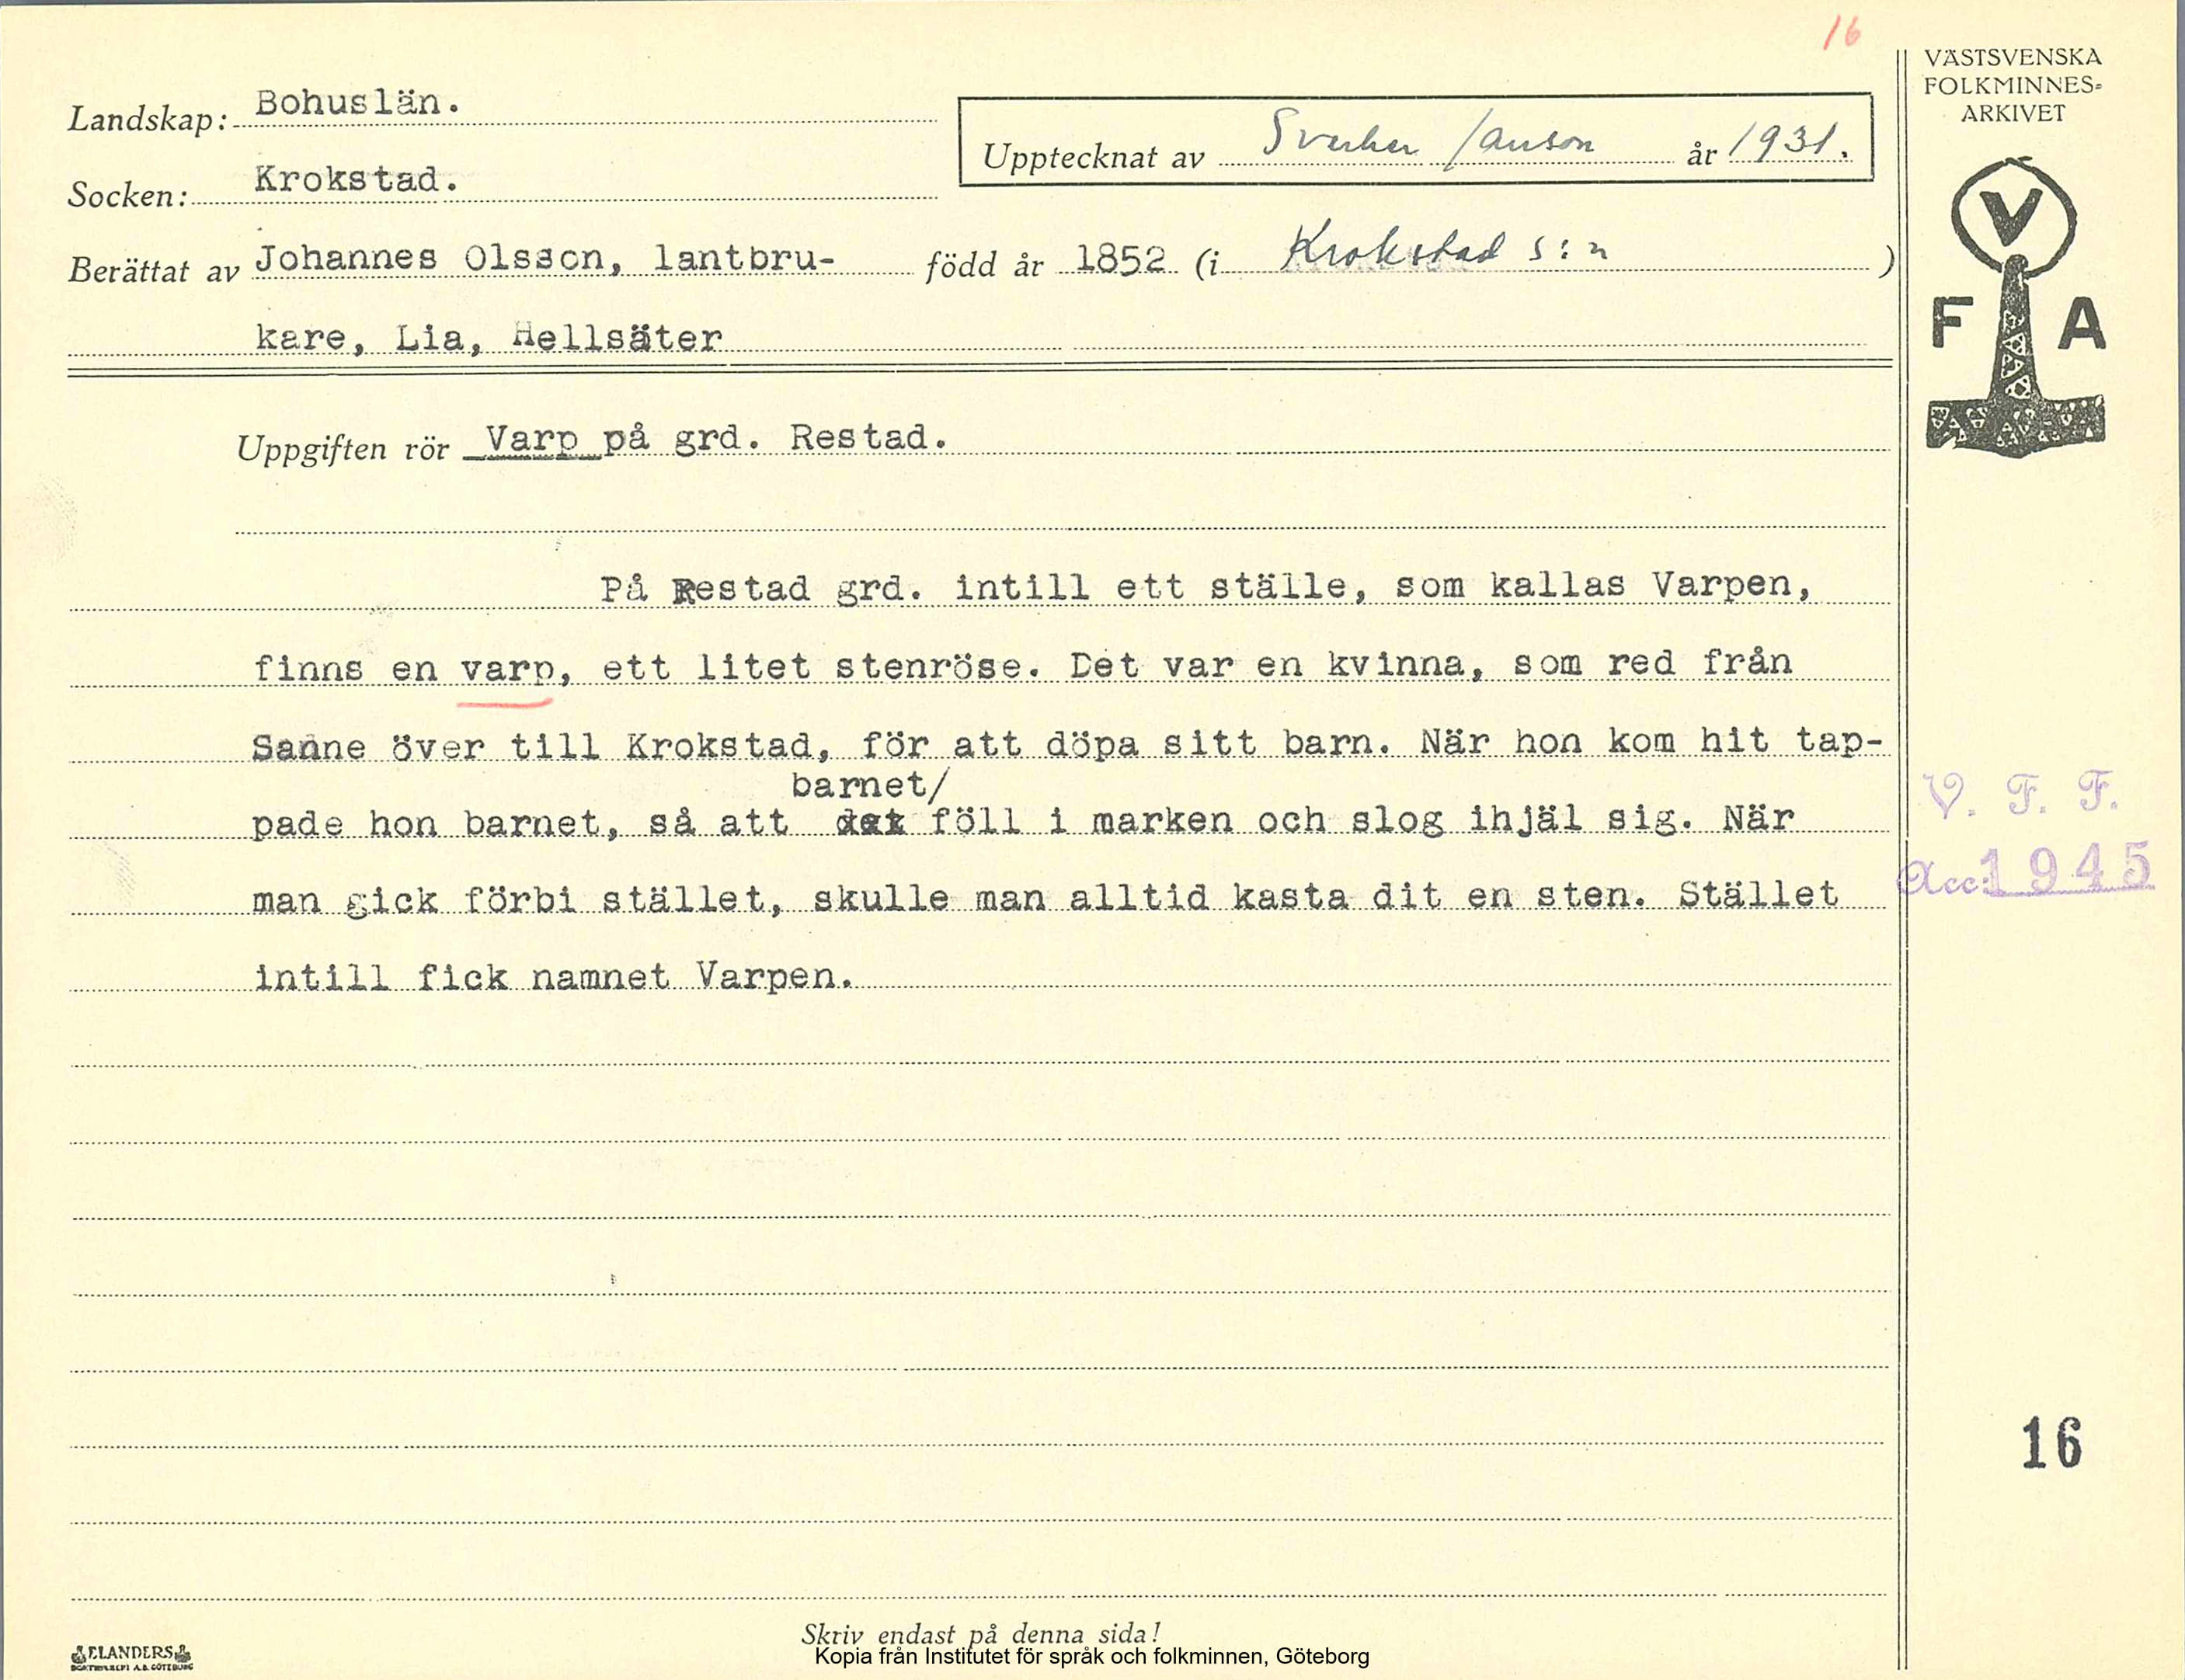 16
VÄSTSVENSKA
FOLKMINNES-
ARKIVET
Landskap: Bohuslän.
Upptecknat av Sverker Janson år 1931.
Socken: Krokstad.
Berättat av Johannes Olsson, lantbru- född år 1852 (i Krokstad s:n )
kare, Lia, Hellsäter
V
F A
Uppgiften rör Varp på grd. Restad.
På Restad grd. intill ett ställe, som kallas Varpen,
finns en varp, ett litet stenröse. Det var en kvinna, som red från
Sanne över till Krokstad, för att döpa sitt barn. När hon kom hit tap-
barnet/
pade hon barnet, så att det föll i marken och slog ihjäl sig. När
man gick förbi stället, skulle man alltid kasta dit en sten. Stället
intill fick namnet Varpen.
V. F. F.
Acc: 1945
16
Skriv endast på denna sida!
ELANDERS
BOKTRYCKERI A.B. GÖTEBORG
Kopia från Institutet för språk och folkminnen, Göteborg